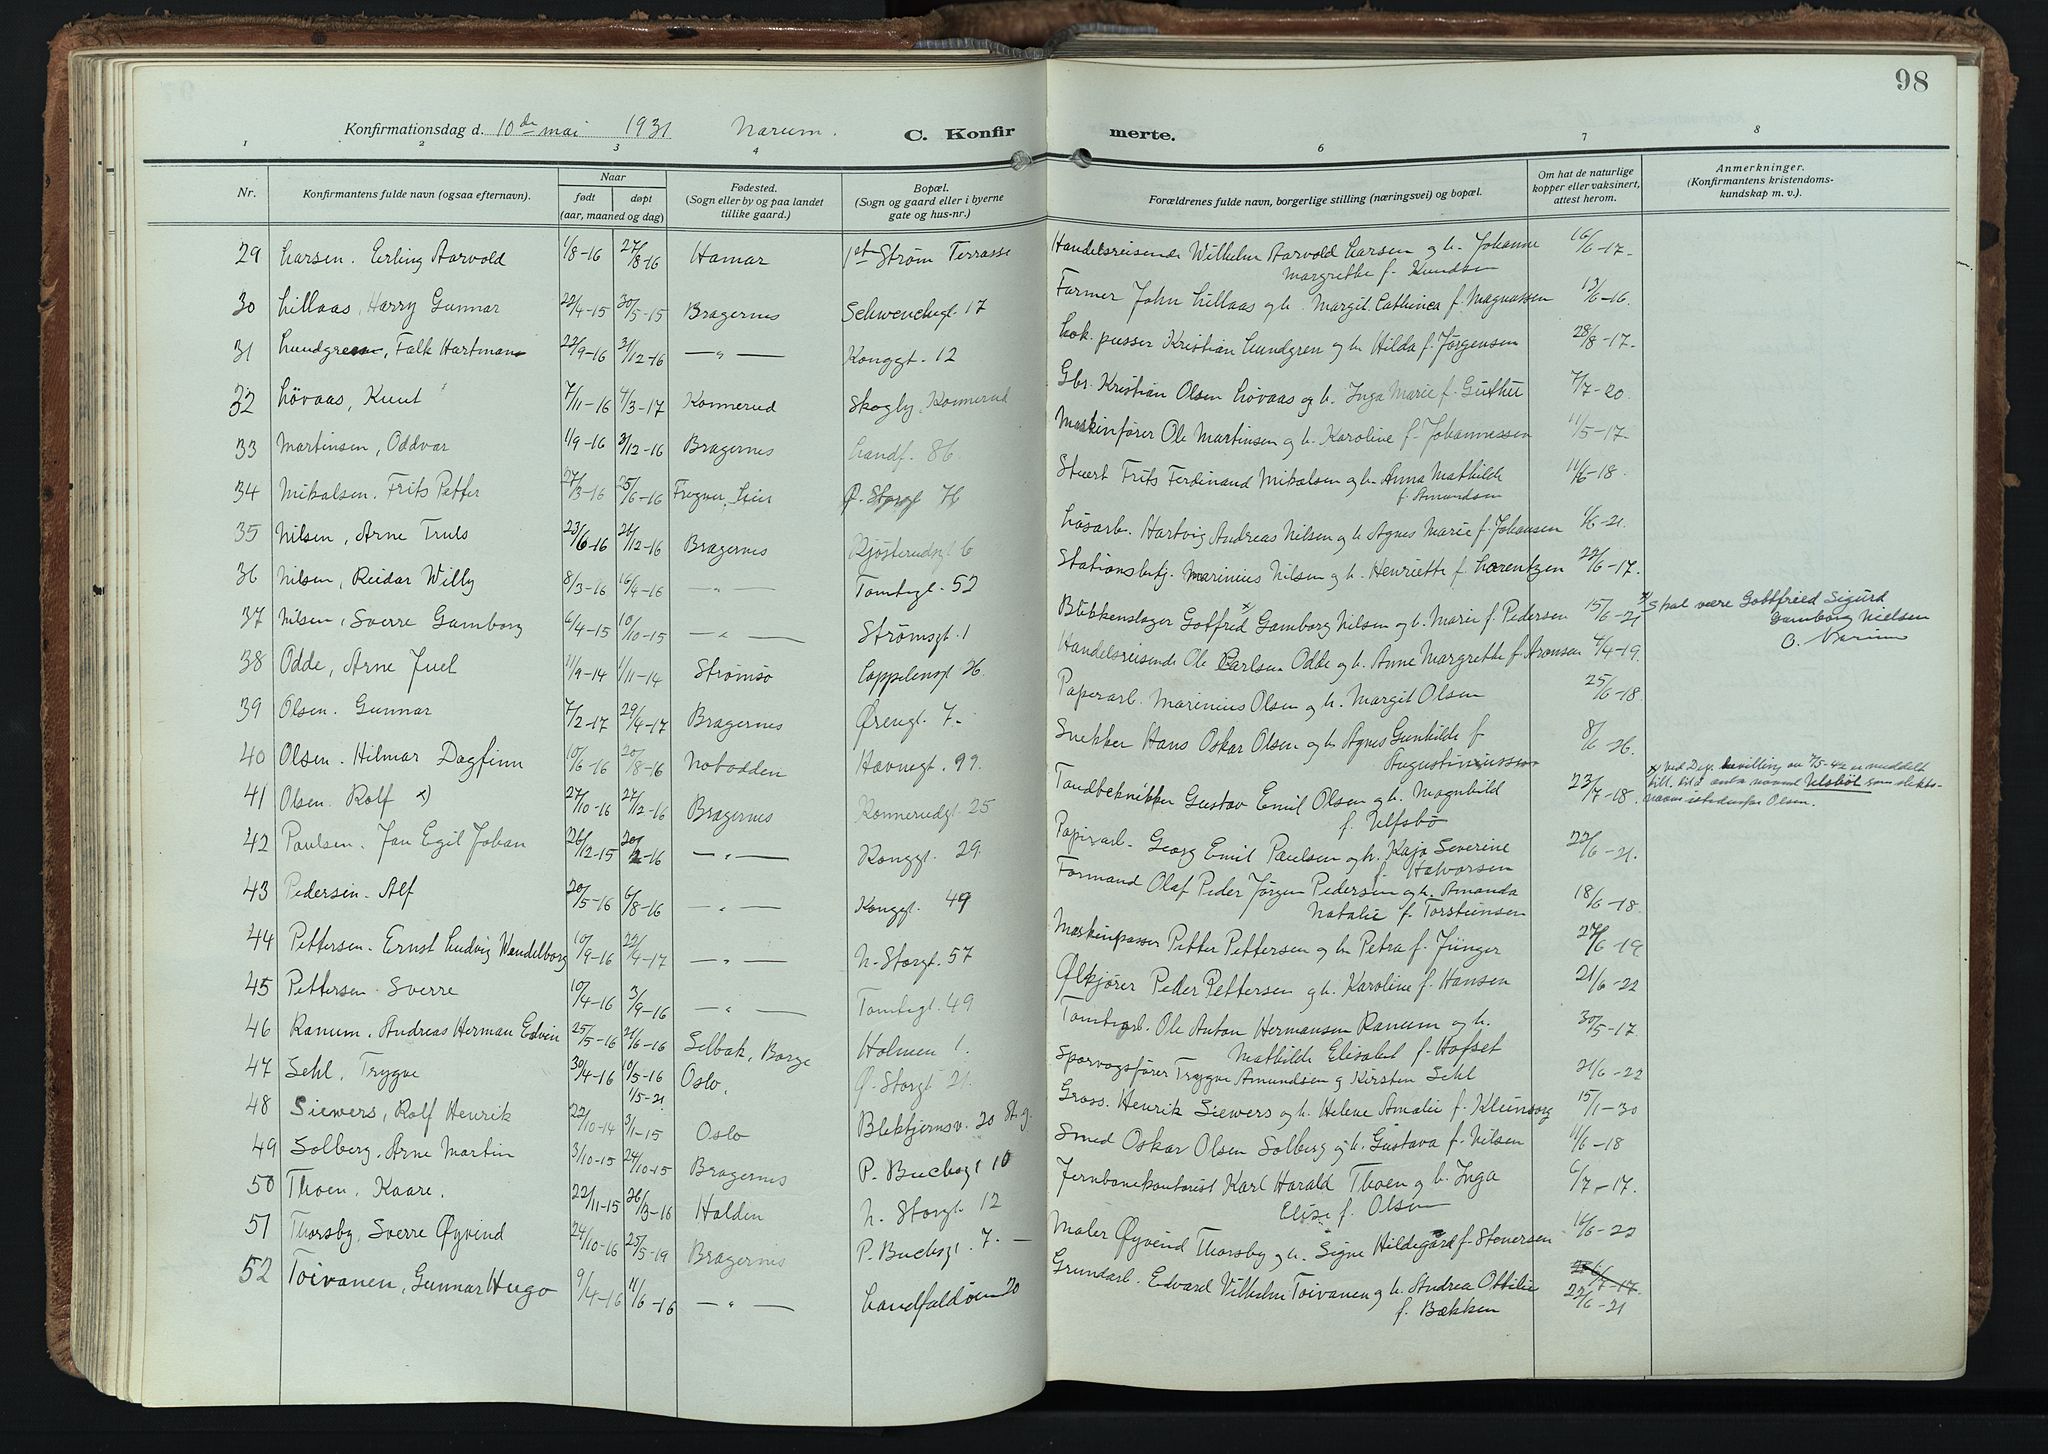 98
Konfirmationsdag d. 10de mai 1931 Narum. C. Konfirmerte.
1 2 3 4 6 7 8
Nr. Konfirmantens fulde navn (ogsaa efternavn). Naar født døpt (aar, maaned og dag) Fødested. (Sogn eller by og paa landet tillike gaard.) Bopæl. (Sogn og gaard eller i byerne gate og hus-nr.) Forældrenes fulde navn, borgerlige stilling (næringsvei) og bopæl. Om hat de naturlige kopper eller vaksinert, attest herom. Anmerkninger. (Konfirmantens kristendoms- kundskap m. v.).
29 Larsen. Erling Aarvold 1/8-16 27/8-16 Hamar 1st Strøm Terrasse Handelsreisende Wilhelm Aarvold Larsen og h. Johanne 16/6-17.
Margrethe f. Knudsen
30 Lillaas, Harry Gunnar 22/4-15 30/5-15 Bragernes Schwenckegt. 17 Farmer John Lillaas og h. Margit Cathinca f. Magnussen 13/6-16.
31 Lundgreen, Falk Hartman 22/9-16 31/12-16 —„— Konggt. 12 Lok. pusser Kristian Lundgren og h. Hilda f. Jørgensen 28/8-17.
32 Lövaas, Knut 7/11-16 4/3-17 Konnerud Skogly, Konnerud Gbr. Kristian Olsen Lövaas og h. Inga Marie f. Guttu 7/7-20
33 Martinsen, Oddvar 1/9-16 31/12-16 Bragernes Landf. 86. Maskinfører Ole Martinsen og h. Karoline f. Johannessen 11/5-17.
34 Mikalsen. Frits Petter 27/3-16 25/6-16 Frogner, Lier Ø. Storgt 76 Stuert Frits Ferdinand Mikalsen og h. Anna Mathilde 11/6-18.
f. Amundsen
35 Nilsen, Arne Truls 23/6-16 26/12-16 Bragernes Kjøsterudsgt 6 Løsarb. Hartvig Andreas Nilsen og h. Agnes Marie f. Johansen 1/6-21.
36 Nilsen, Reidar Willy 8/3-16 16/4-16 —„— Tomtegt. 52 Stationsbetj. Marinius Nilsen og h. Henriette f. Lorentzen 22/6-17.
37 Nilsen, Sverre Gamborg 6/4-15 10/10-15 —„— Strømsgt. 1 Blikkenslager Gotfred x Gamborg Nilsen og h. Marie f. Pedersen 15/6-21 x Skal være Gottfried Sigurd
Gamborg Nielsen
O. Narum
38 Odde, Arne Juel 11/9-14 1/11-14 Strømsø Cappelensgt 26. Handelsreisende Ole Carlsen Odde og h. Anne Margrethe f. Aronsen 4/4-19.
39 Olsen. Gunnar 7/2-17 29/4-17 Bragernes Ørengt. 7.- Papirarb. Marinius Olsen og h. Margit Olsen 25/6-18.
40 Olsen. Hilmar Dagfinn 10/6-16 20/8-16 Notodden Havnegt. 99. Snekker Hans Oskar Olsen og h. Agnes Gunhilde f 8/6-26.
Augustiniussen
41 Olsen. Rolf x) 27/10-16 27/12-16 Bragernes Konnerudgt 25 Tandtekniker Gustav Emil Olsen og h. Magnhild 23/7-18. x) ved Dep. bevilling av 7/5-42 er meddelt
f. Ulfsbø till. til å anta navnet Ulsbøl som slekts-
navn istedenfor Olsen.
42 Paulsen. Jan Egil Johan 26/12-15 20/2-16 —„— Konggt. 29. Papirarb. Georg Emil Paulsen og h. Kaja Severine 22/6-21.
f Halvorsen
43 Pedersen. Alf 20/5-16 6/8-16 —„— Konggt. 49 Formand Olaf Peder Jørgen Pedersen og h. Amanda 18/6-18.
Natalie f. Torsteinsen
44 Pettersen. Ernst Ludvig Wandelborg 10/9-16 22/4-17 —„— N. Storgt. 57 Maskinpasser Petter Pettersen og h. Petra f. Jünger 27/6-19
45 Pettersen. Sverre 10/4-16 3/9-16 —„— Tomtegt. 49 Ølkjører Peder Pettersen og h. Karoline f. Hansen 21/6-22
46 Ranum. Andreas Herman Edvin 25/5-16 21/6-16 Selbak, Borge Holmen 1. Tomtearb. Ole Anton Hermansen Ranum og h. 30/5-17.
Mathilde Elisabet f. Hofset
47 Sehl, Trygve 30/4-16 10/5-16 Oslo Ø. Storgt 21. Sporvogsfører Trygve Amundsen og Kirsten Sehl 21/6-22
1/5-21
48 Siewers, Rolf Henrik 22/10-14 3/1-15 Oslo Blektjernsv. 20 St.g. Gross. Henrik Siewers og h. Helene Amalie f. Kleinborg 15/1-30
49 Solberg, Arne Martin 3/10-15 24/10-15 Bragernes P. Buchsgt 10 Smed Oskar Olsen Solberg og h. Gustava f. Nilsen 11/6-18
50 Thoen, Kaare. 22/11-15 26/3-16 Halden N. Storgt. 12 Jernbanekontorist Karl Harald Thoen og h. Inga 6/7-17.
Elise f. Olsen
51 Thorsby, Sverre Øyvind 24/10-16 25/5-19 Bragernes P. Buchsgt. 7. — Maler Øyvind Thorsby og h. Signe Hildegård f. Stenersen 16/6-22
52 Toivanen, Gunnar Hugo 9/4-16 11/6-16 —„— Landfaldøien 20 Grundarb. Edvard Vilhelm Toivanen og h. Andrea Ottilie 6/7-17
f. Bækken 22/6-21